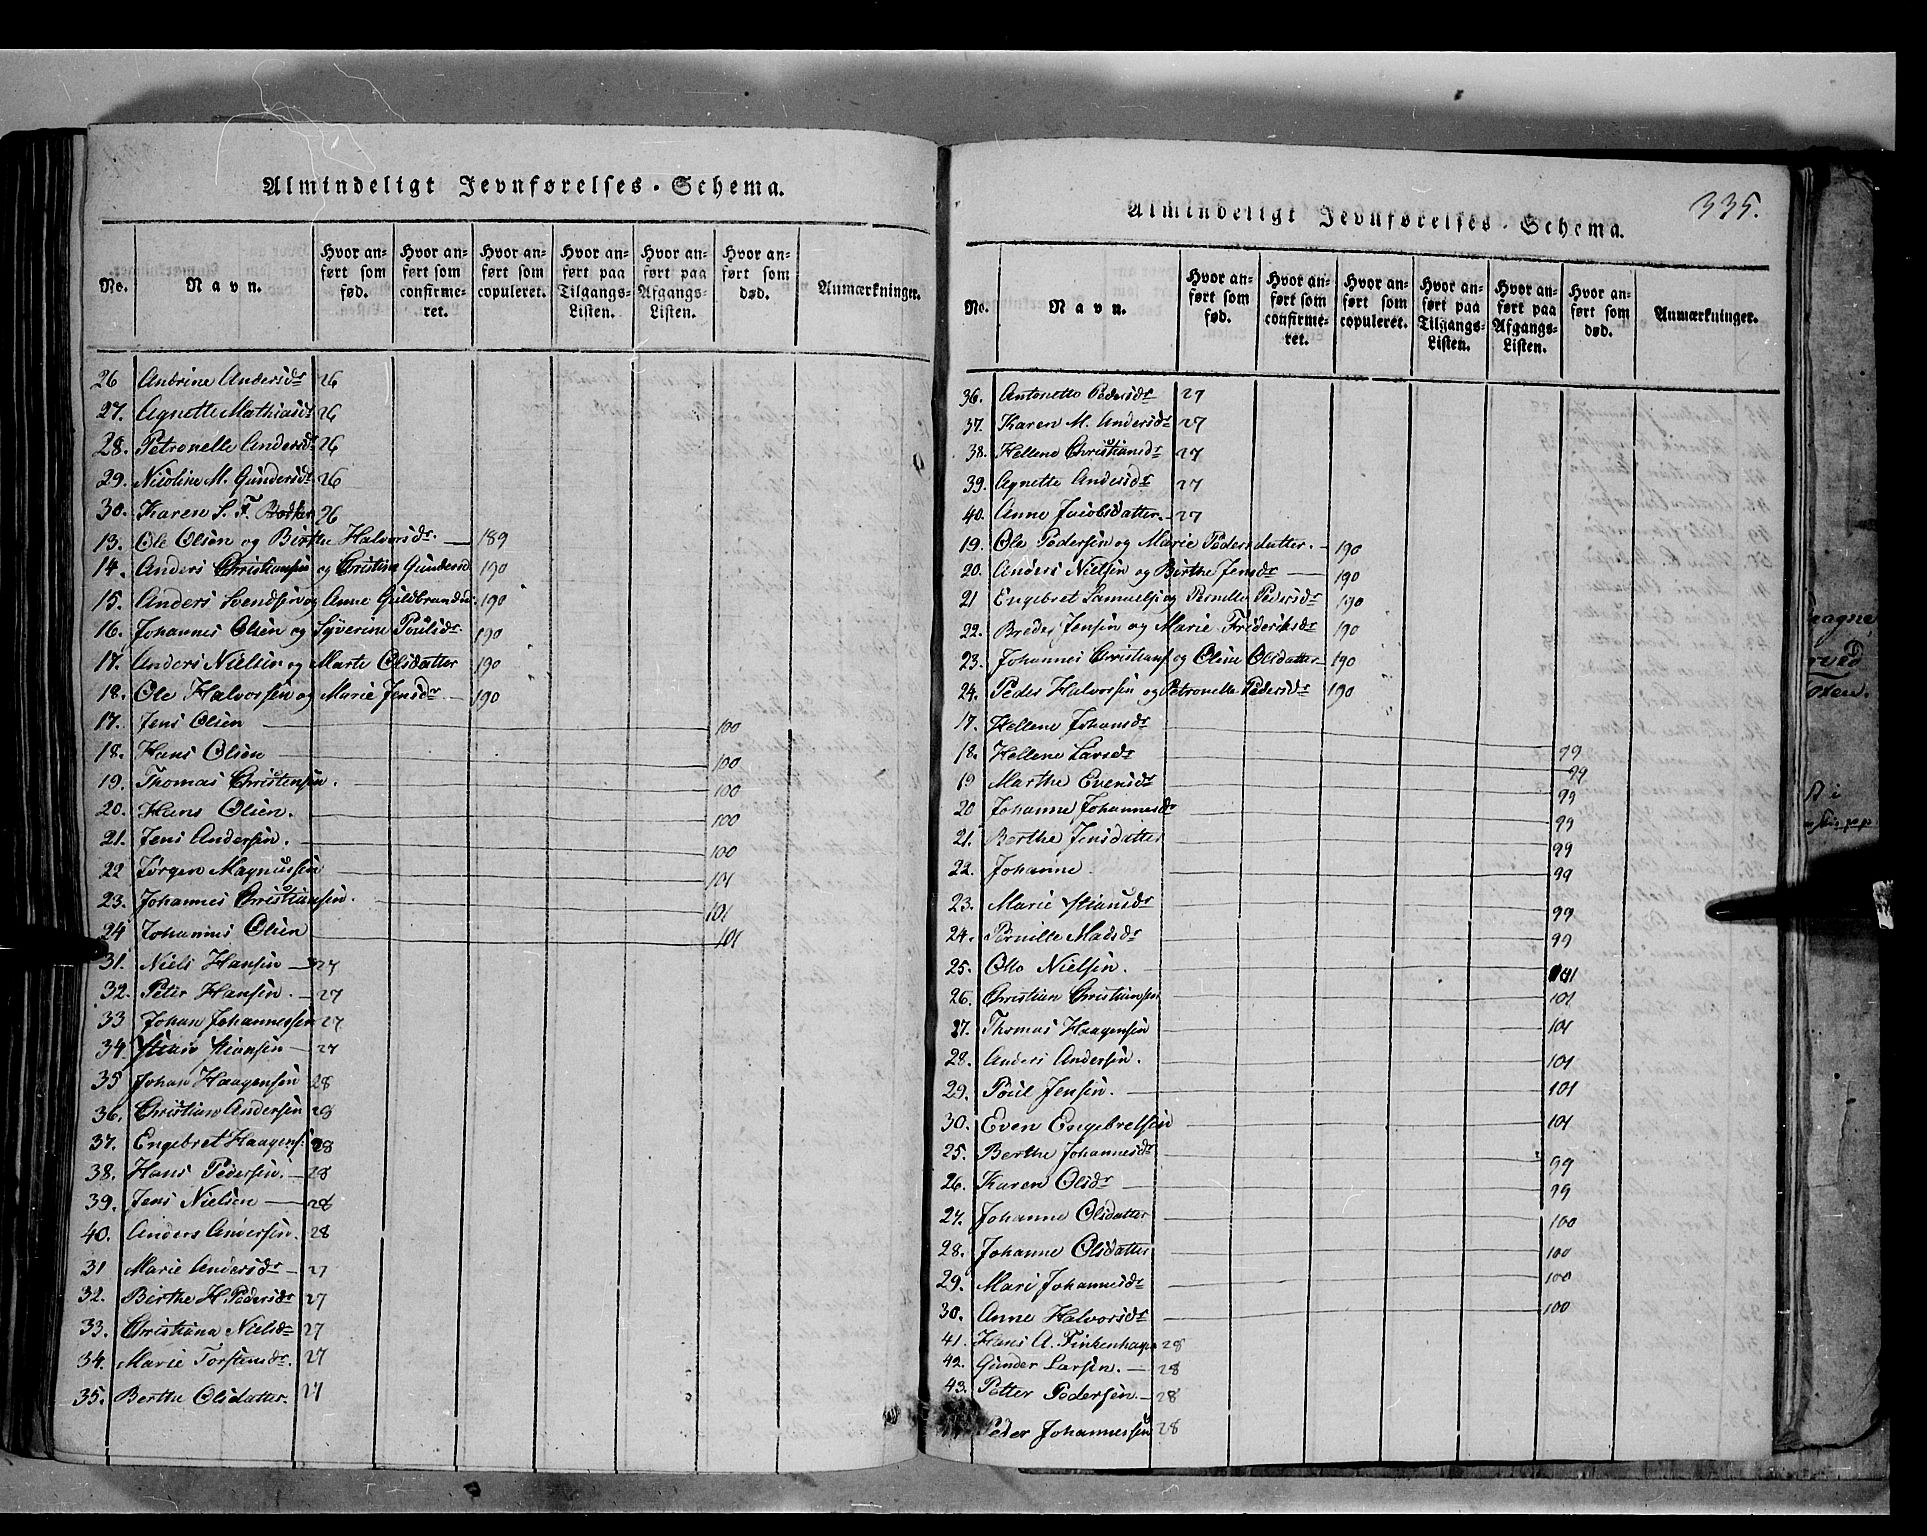 Almindeligt Jevnførelses-Schema.
No.
Navn.
Hvor anført som fød.
Hvor anført som confirmeret.
Hvor anført som copuleret.
Hvor anført paa Tilgangs-Listen.
Hvor anført paa Afgangs-Listen.
Hvor anført som død.
Anmærkninger.
26 Andrine Andersdr 26
27. Agnette Mathiasdr 26
28. Petronelle Andersdr 26
29. Nicoline M. Gundersdr 26
30. Karen S. F. 26
13. Ole Olsen og Birthe Halvorsdr. 189
14. Anders Christiansen og Christine Gundersd 190
15. Anders Svendsen og Anne Guldbrandsd. 190
16. Johannes Olsen og Syverine Poulsdr. 190
17. Anders Nielsen og Marte Olsdatter 190
18. Ole Halvorsen og Marie Jensdr 190
17. Jens Olsen 100
18. Hans Olsen 100
19. Thomas Christensen. 100
20. Hans Olsen. 100
21. Jens Andersen. 100
22 Jørgen Magnussen 101
23. Johannes Christiansen. 101
24 Johannes Olsen 101
31. Niels Hansen 27
32. Peter Hansen. 27
33 Johan Johannessen 27
34. Stian Stiansen 27
35 Johan Haagensen 28
36. Christian Andersen 28
37. Engebret Haagens. 28
38. Hans Pedersen. 28
39. Jens Nielsen 28
40. Anders Andersen. 28
31 Marie Andersdr 27
32. Birthe H. Pedersdr 27
33. Christiana Nielsdr 27
34. Marie Torstensdr. 27
35. Berthe Olsdatter. 27
335.
Almindeligt Jevnførelses-Schema.
No.
Navn.
Hvor anført som fød.
Hvor anført som confirmeret.
Hvor anført som copuleret.
Hvor anført paa Tilgangs-Listen.
Hvor anført paa Afgangs-Listen.
Hvor anført som død.
Anmærkninger.
36. Antonette Pedersdr 27
37. Karen M. Andersdr 27
38. Hellene Christiansdr 27
39. Agnette Andersdr 27
40. Anne Jacobsdatter. 27
19. Ole Pedersen og Marie Pedersdatter. 190
20. Anders Nielsen og Birthe Jensdr 190
21 Engebret Samuels. og Pernille Pedersdr 190
22. Brede Jensen og Marie Frideriksdr 190
23. Johannes Christians. og Oline Olsdatter 190
24. Peder Halvorsen og Petronelle Pedersdr 190
17. Hellene Johansdr 99
18. Hellene Larsdr 99
19 Marthe Evensdr 99
20 Johanne Johannesdr 99
21. Berthe Jensdatter 99
22. Johanne 99
23. Marie Stiansdr 99
24. Pernille Madsdr 99
25. Otto Nielsen. 101
26. Christian Christiansen 101
27. Thomas Haagensen 101
28. Anders Andersen. 101
29. Poul Jensen. 101
30. Even Engebretsen 101
25. Berthe Johannesdr 99
26. Karen Olsdr 99
27. Johanne Olsdatter 100
28. Johanne Olsdatter 100
29. Mari Johannesdr 100
30. Anne Halvorsdr 100
41. Hans A. Finkenhagen 28
42. Gunder Larsen. 28
43. Petter Pedersen. 28
Peder Johannessen 28